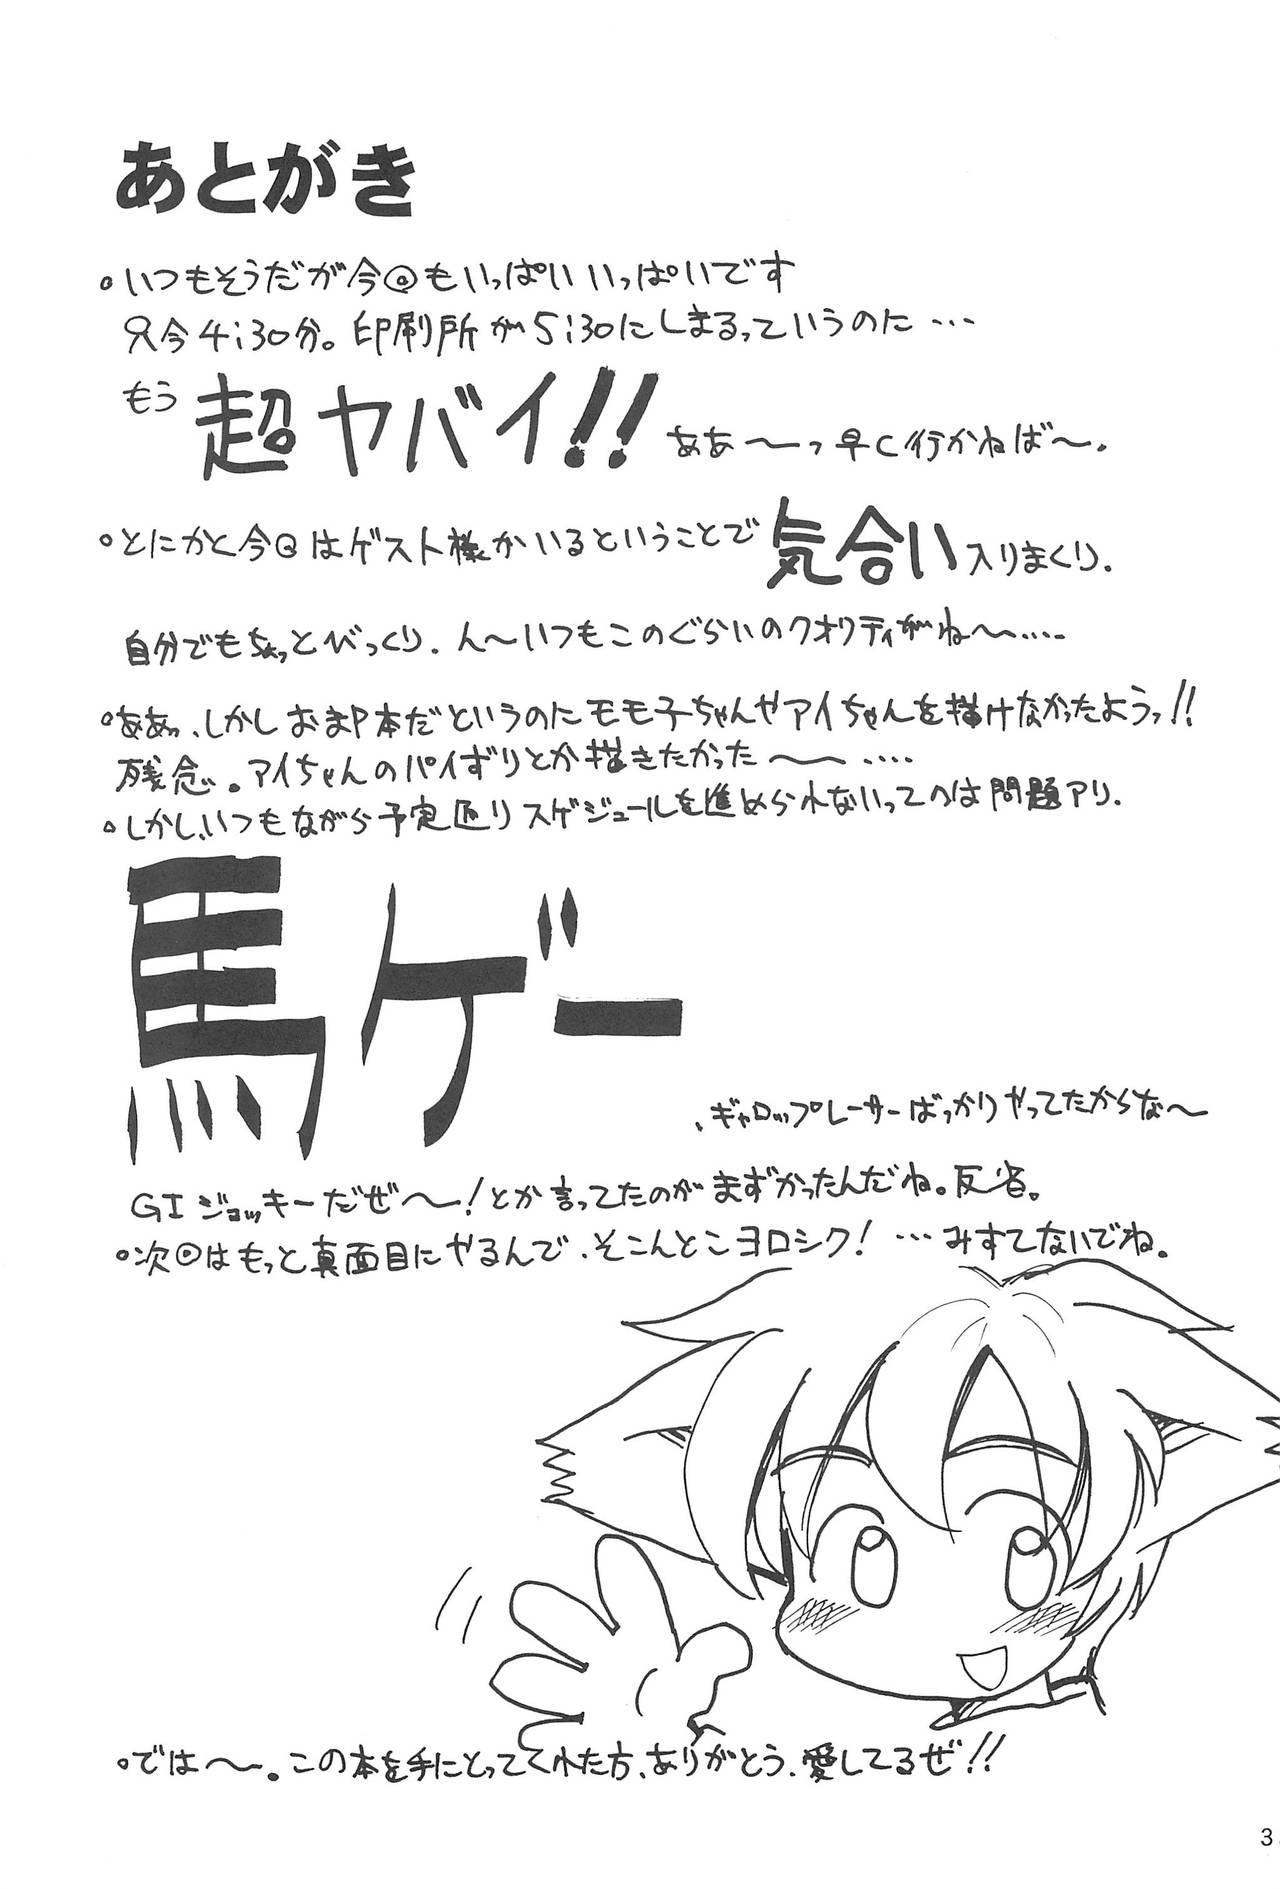 あとがき
。いつもそうだが今回もいっぱいいっぱいです
只今4:30分。印刷所が5:30にしまるっていうのに…
もう 超ヤバイ!! ああ〜っ早く行かねば〜。
。とにかく今回はゲスト様がいるということで気合い入りまくり。
自分でもちょっとびっくり。ん〜いつもこのぐらいのクオリティがね〜……
。ああっ、しかしおまP本だというのにモモ子ちゃんやアイちゃんを描けなかったようっ!!
残念。アイちゃんのパイずりとか描きたかった〜……
。しかし、いつもながら予定通りスケジュールを進められないってのは問題アリ。
馬ゲー
、ギャロップレーサーばっかりやってたからな〜
GIジョッキーだぜ〜!とか言ってたのがまずかったんだね。反省。
。次回はもっと真面目にやるんで、そこんとこヨロシク!…みすてないでね。
。では〜。この本を手にとってくれた方、ありがとう、愛してるぜ!!
3